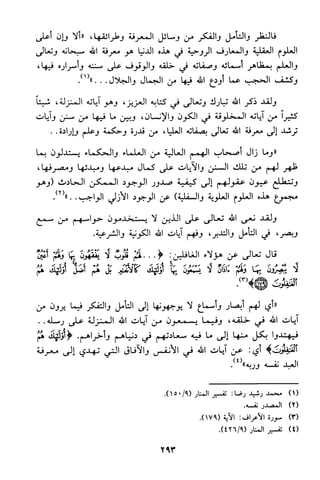 فالنظر والتأمل والفكر من وسائل المعرفة وطرائقها، «ألا وإن أعلى
العلوم العقلية والمعارف الروحية في هذه الدنيا هو معرفة الله سبحانه وتعالى
والعلم بمظاهر أسمائه وصفاته في خلقه والوقوف على سننه وأسراره فيها،
وكشف الحجب عما أودع الله فيها من الجمال والجلال...»(١).
ولقد ذكر الله تبارك وتعالى في كتابه العزيز، وهو آياته المنزلة، شيئاً
كثيراً من آياته المخلوقة في الكون والإنسان، وبين ما فيها من سنن وآيات
ترشد إلى معرفة الله تعالى بصفاته العليا، من قدرة وحكمة وعلم وإرادة..
«وما زال أصحاب الهمم العالية من العلماء والحكماء يستدلون بما
ظهر لهم من تلك السنن والآيات على كمال مبدعها ومبدئها ومصرفها،
وتتطلع عيون عقولهم إلى كيفية صدور الوجود الممكن الحادث (وهو
مجموع هذه العلوم العلوية والسفلية) عن الوجود الأزلي الواجب..»(٢).
ولقد نعى الله تعالى على الذين لا يستخدمون حواسهم من سمع
وبصر، في التأمل والتدبر، وفهم آيات الله الكونية والشرعية.
قال تعالى عن هؤلاء الغافلين: ﴿... لَهُمْ قُلُوبٌ لَّا يَفْقَهُونَ بِهَا وَلَهُمْ أَعْيُنٌ
لَّا يُبْصِرُونَ بِهَا وَلَهُمْ ءَاذَانٌ لَّا يَسْمَعُونَ بِهَآ أُوْلَٰٓئِكَ كَٱلْأَنْعَٰمِ بَلْ هُمْ أَضَلُّ أُوْلَٰٓئِكَ هُمُ
ٱلْغَٰفِلُونَ ﴾(٣).
«أي لهم أبصار وأسماع لا يوجهونها إلى التأمل والتفكر فيما يرون من
آيات الله في خلقه، وفيما يسمعون من آيات الله المنزلة على رسله..
فيهتدوا بكل منها إلى ما فيه سعادتهم في دنياهم وأخراهم. ﴿أُوْلَٰٓئِكَ هُمُ
ٱلْغَٰفِلُونَ﴾ أي: عن آيات الله في الأنفس والآفاق التي تهدي إلى معرفة
العبد نفسه وربه»(٤).
(١) محمد رشيد رضا: تفسير المنار (٩/١٥٠).
(٢) المصدر نفسه.
(٣) سورة الأعراف: الآية (١٧٩)
(٤) تفسير المنار (٩/٤٢٦).
٢٩٣